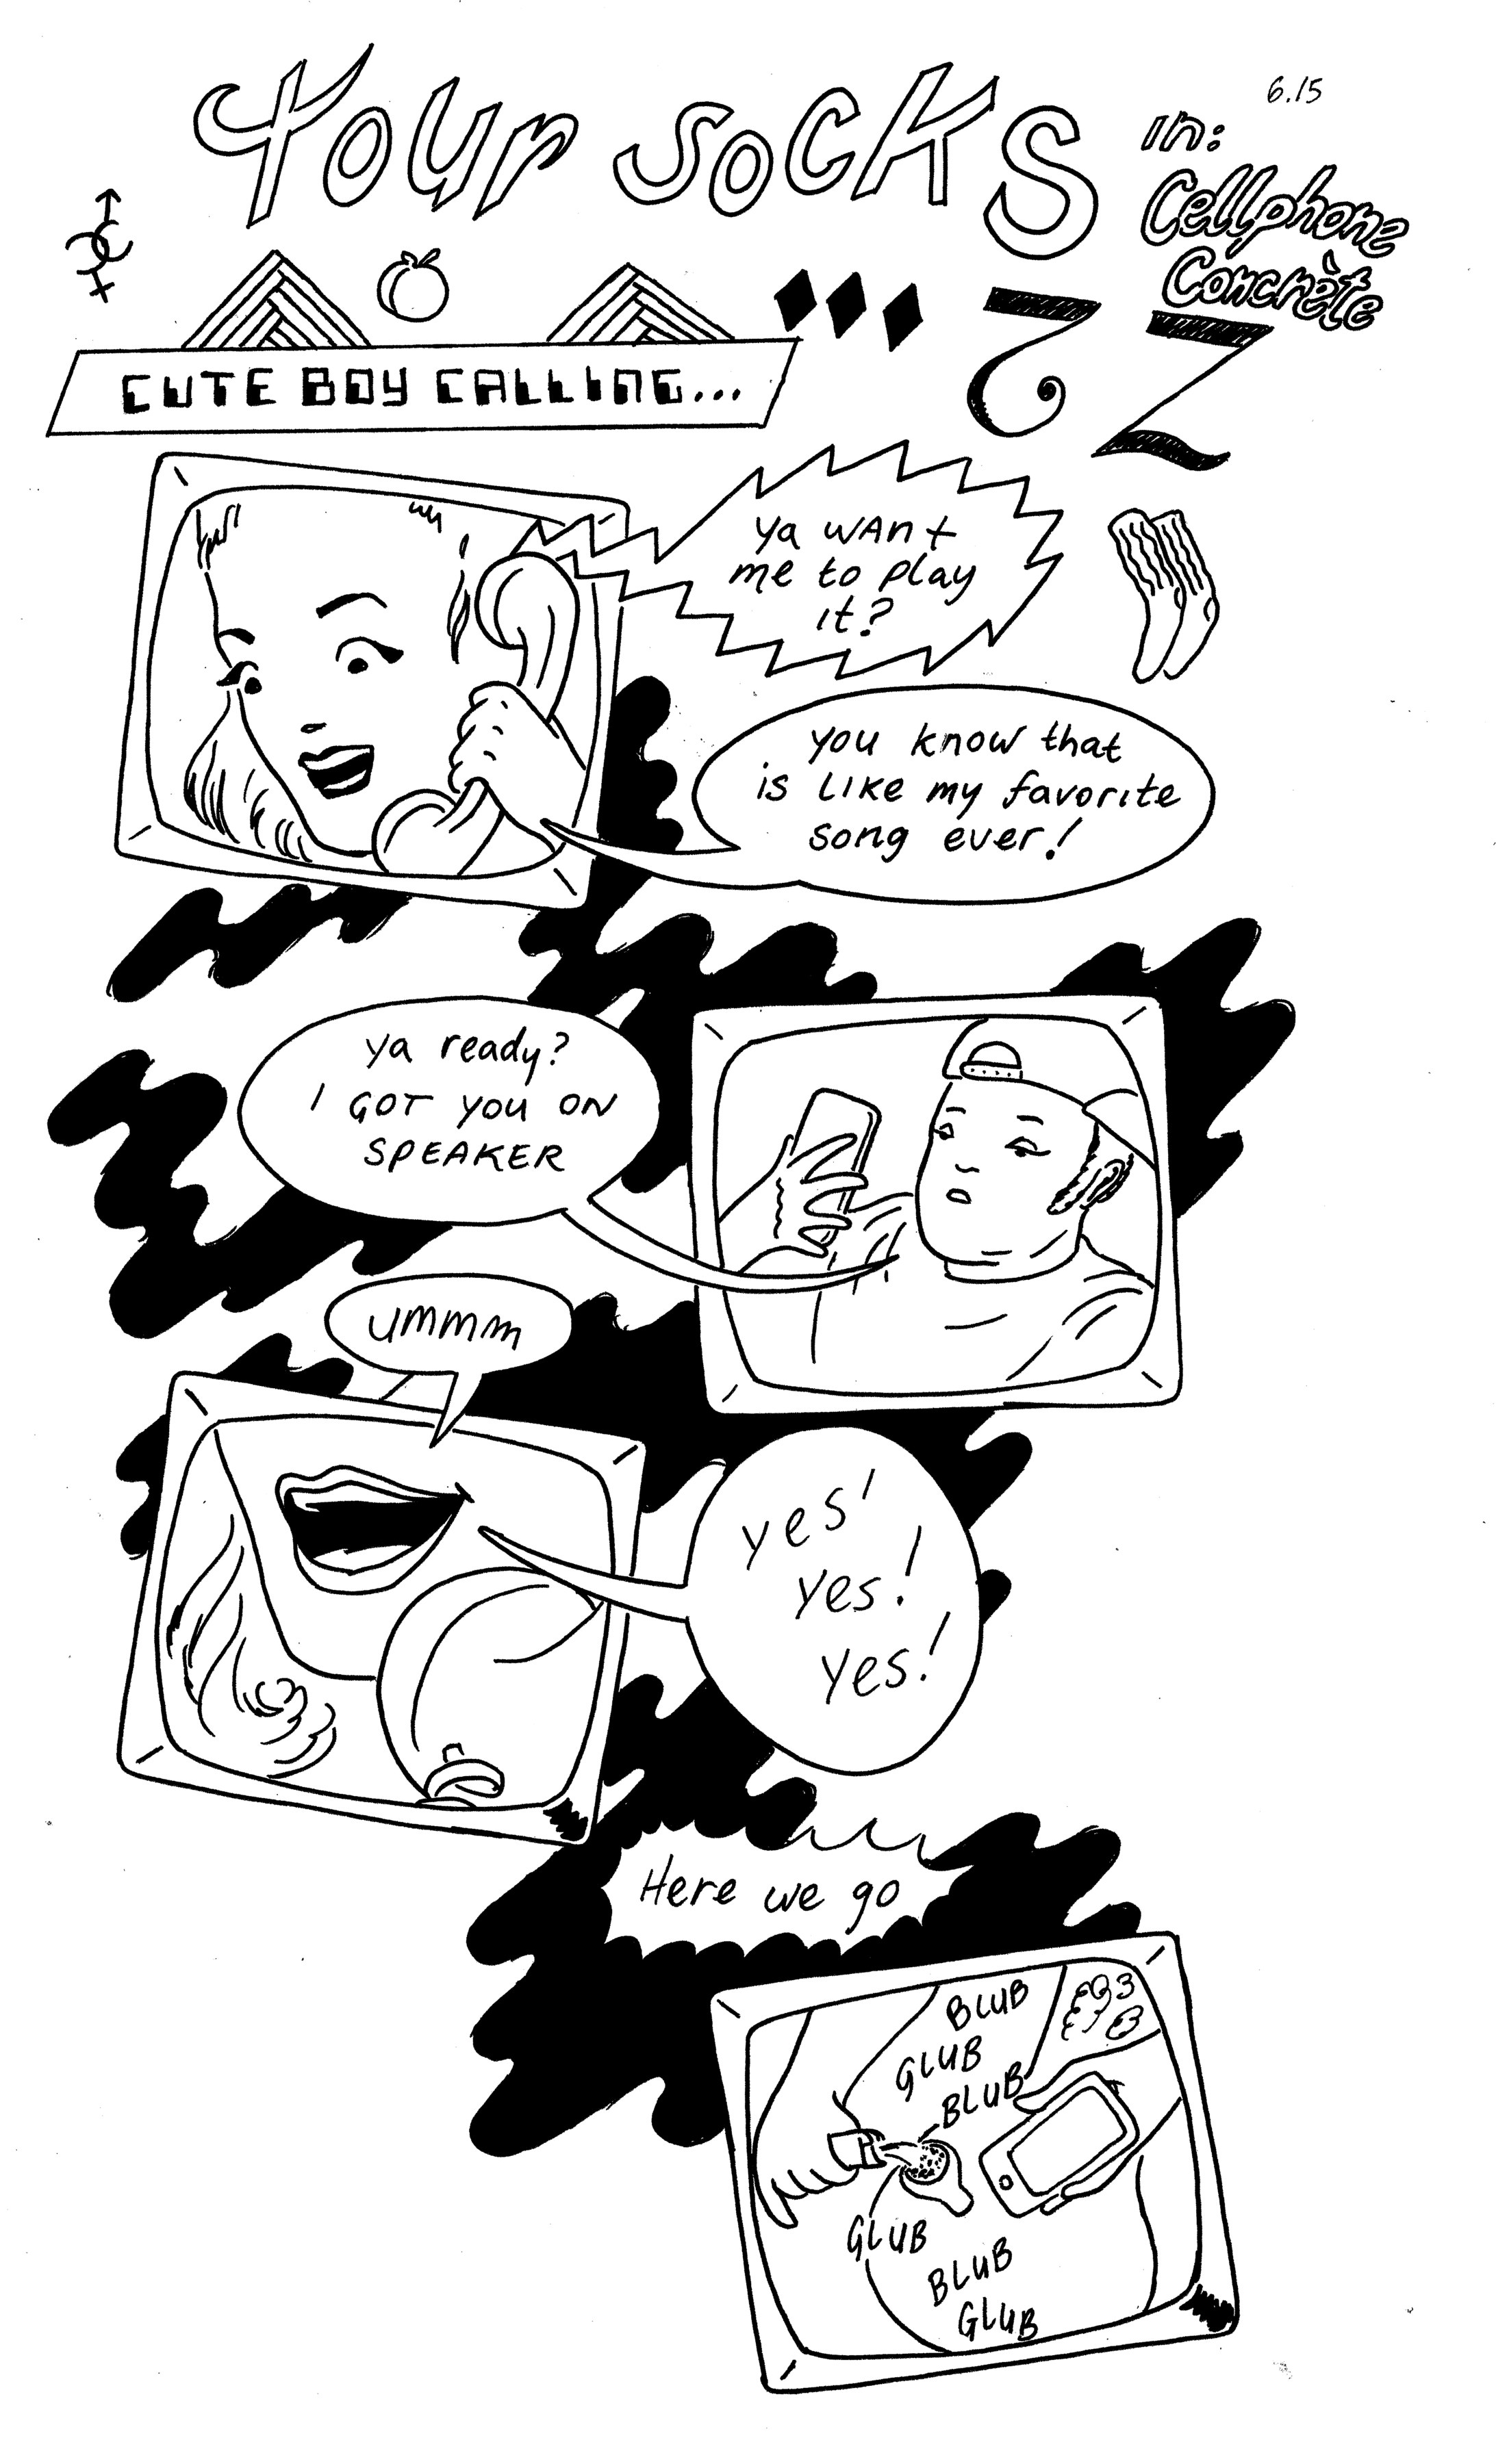 Your Socks
6.15
in:
Cellphone
Concrète
CUTE BOY CALLING...
ya want
me to play
it?
you know that
is like my favorite
song ever!
ya ready?
I GOT YOU ON
SPEAKER
ummm
yes!
yes!
yes!
Here we go
BLUB
GLUB
BLUB
GLUB
BLUB
GLUB